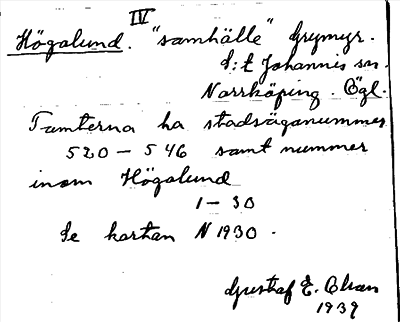 IV
Högalund. "samhälle" Grymyr.
S:t Johannis sn.
Norrköping. Ögl.
Tomterna ha stadsäganummer
520 - 546 samt nummer
inom Högalund
1 - 30
Se kartan N 1930.
Gustaf E. Olsan
1939